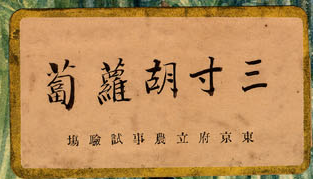 三寸胡蘿蔔
東京府立農事試驗塲